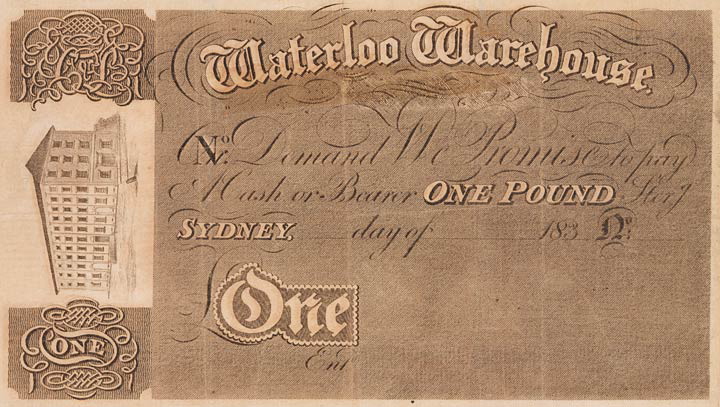 Waterloo Warehouse.
No. Demand We Promise to pay
A Cash or Bearer ONE POUND Ster.g
SYDNEY, day of 183 No.
One
Ent
ONE